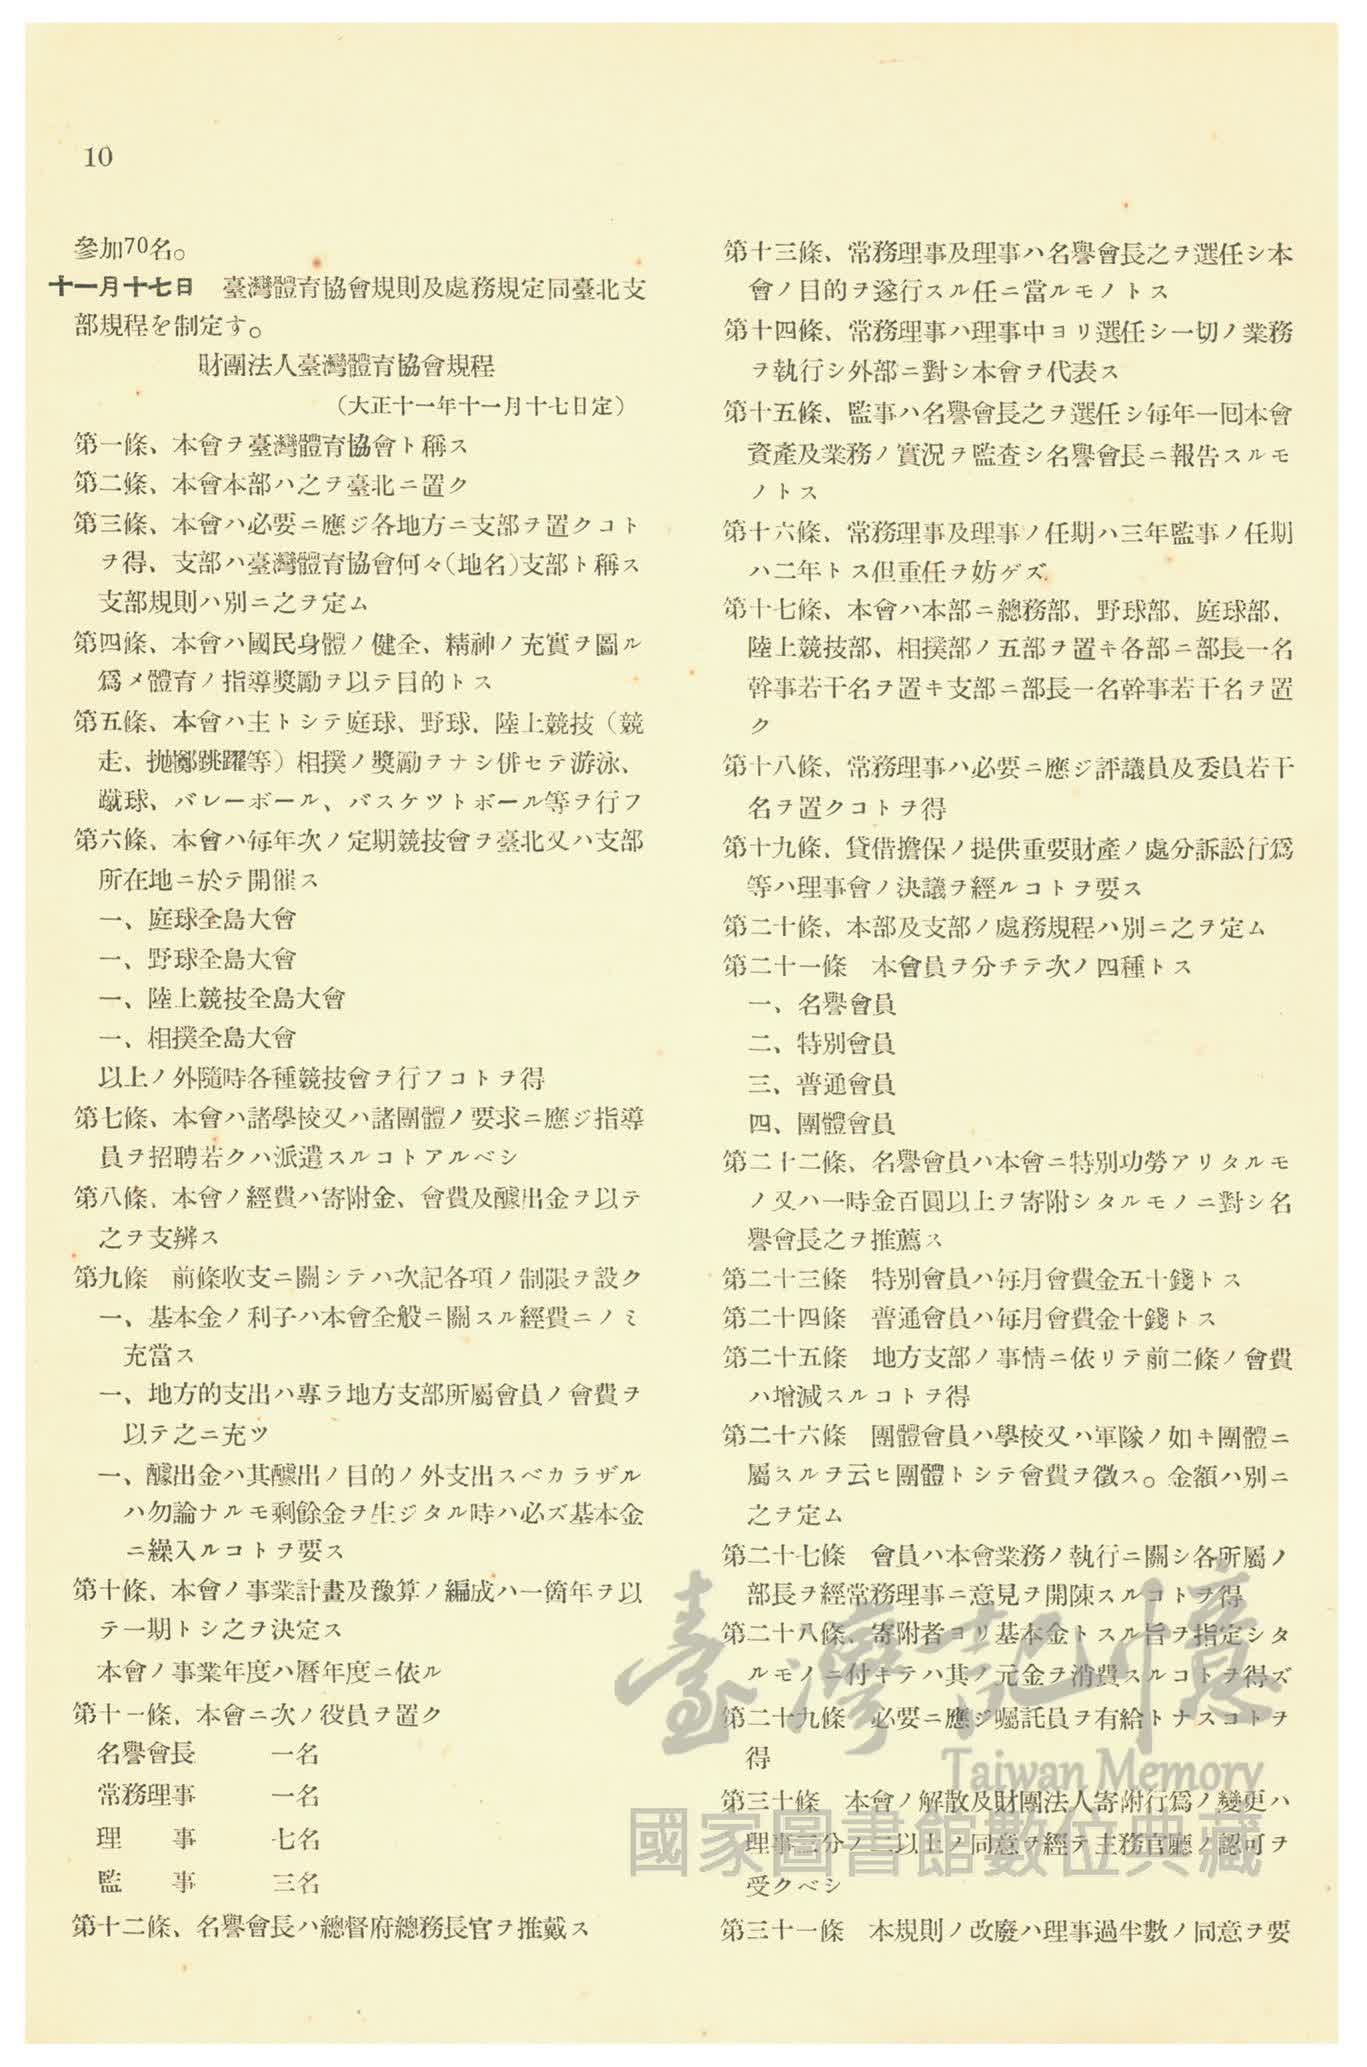 10
參加70名。
十一月十七日　臺灣體育協會規則及處務規定同臺北支
部規程を制定す。
財團法人臺灣體育協會規程
（大正十一年十一月十七日定）
第一條、本會ヲ臺灣體育協會ト稱ス
第二條、本會本部ハ之ヲ臺北ニ置ク
第三條、本會ハ必要ニ應ジ各地方ニ支部ヲ置クコト
ヲ得、支部ハ臺灣體育協會何々（地名）支部ト稱ス
支部規則ハ別ニ之ヲ定ム
第四條、本會ハ國民身體ノ健全、精神ノ充實ヲ圖ル
爲メ體育ノ指導獎勵ヲ以テ目的トス
第五條、本會ハ主トシテ庭球、野球、陸上競技（競
走、抛擲跳躍等）相撲ノ獎勵ヲナシ併セテ游泳、
蹴球、バレーボール、バスケツトボール等ヲ行フ
第六條、本會ハ毎年次ノ定期競技會ヲ臺北又ハ支部
所在地ニ於テ開催ス
一、庭球全島大會
一、野球全島大會
一、陸上競技全島大會
一、相撲全島大會
以上ノ外隨時各種競技會ヲ行フコトヲ得
第七條、本會ハ諸學校又ハ諸團體ノ要求ニ應ジ指導
員ヲ招聘若クハ派遣スルコトアルベシ
第八條、本會ノ經費ハ寄附金、會費及醵出金ヲ以テ
之ヲ支辨ス
第九條　前條收支ニ關シテハ次記各項ノ制限ヲ設ク
一、基本金ノ利子ハ本會全般ニ關スル經費ニノミ
充當ス
一、地方的支出ハ專ラ地方支部所屬會員ノ會費ヲ
以テ之ニ充ツ
一、醵出金ハ其醵出ノ目的ノ外支出スベカラザル
ハ勿論ナルモ剩餘金ヲ生ジタル時ハ必ズ基本金
ニ繰入ルコトヲ要ス
第十條、本會ノ事業計畫及豫算ノ編成ハ一箇年ヲ以
テ一期トシ之ヲ決定ス
本會ノ事業年度ハ曆年度ニ依ル
第十一條、本會ニ次ノ役員ヲ置ク
名譽會長　　　一名
常務理事　　　一名
理　　事　　　七名
監　　事　　　三名
第十二條、名譽會長ハ總督府總務長官ヲ推戴ス
第十三條、常務理事及理事ハ名譽會長之ヲ選任シ本
會ノ目的ヲ遂行スル任ニ當ルモノトス
第十四條、常務理事ハ理事中ヨリ選任シ一切ノ業務
ヲ執行シ外部ニ對シ本會ヲ代表ス
第十五條、監事ハ名譽會長之ヲ選任シ毎年一回本會
資產及業務ノ實況ヲ監查シ名譽會長ニ報告スルモ
ノトス
第十六條、常務理事及理事ノ任期ハ三年監事ノ任期
ハ二年トス但重任ヲ妨ゲズ
第十七條、本會ハ本部ニ總務部、野球部、庭球部、
陸上競技部、相撲部ノ五部ヲ置キ各部ニ部長一名
幹事若干名ヲ置キ支部ニ部長一名幹事若干名ヲ置
ク
第十八條、常務理事ハ必要ニ應ジ評議員及委員若干
名ヲ置クコトヲ得
第十九條、貸借擔保ノ提供重要財產ノ處分訴訟行爲
等ハ理事會ノ決議ヲ經ルコトヲ要ス
第二十條、本部及支部ノ處務規程ハ別ニ之ヲ定ム
第二十一條　本會員ヲ分チテ次ノ四種トス
一、名譽會員
二、特別會員
三、普通會員
四、團體會員
第二十二條、名譽會員ハ本會ニ特別功勞アリタルモ
ノ又ハ一時金百圓以上ヲ寄附シタルモノニ對シ名
譽會長之ヲ推薦ス
第二十三條　特別會員ハ每月會費金五十錢トス
第二十四條　普通會員ハ每月會費金十錢トス
第二十五條　地方支部ノ事情ニ依リテ前二條ノ會費
ハ增減スルコトヲ得
第二十六條　團體會員ハ學校又ハ軍隊ノ如キ團體ニ
屬スルヲ云ヒ團體トシテ會費ヲ徵ス。金額ハ別ニ
之ヲ定ム
第二十七條　會員ハ本會業務ノ執行ニ關シ各所屬ノ
部長ヲ經常務理事ニ意見ヲ開陳スルコトヲ得
第二十八條、寄附者ヨリ基本金トスル旨ヲ指定シタ
ルモノニ付キテハ其ノ元金ヲ消費スルコトヲ得ズ
第二十九條　必要ニ應ジ囑託員ヲ有給トナスコトヲ
得
第三十條　本會ノ解散及財團法人寄附行爲ノ變更ハ
理事三分ノ二以上ノ同意ヲ經テ主務官廳ノ認可ヲ
受クベシ
第三十一條　本規則ノ改廢ハ理事過半數ノ同意ヲ要
臺灣記憶
Taiwan Memory
國家圖書館數位典藏